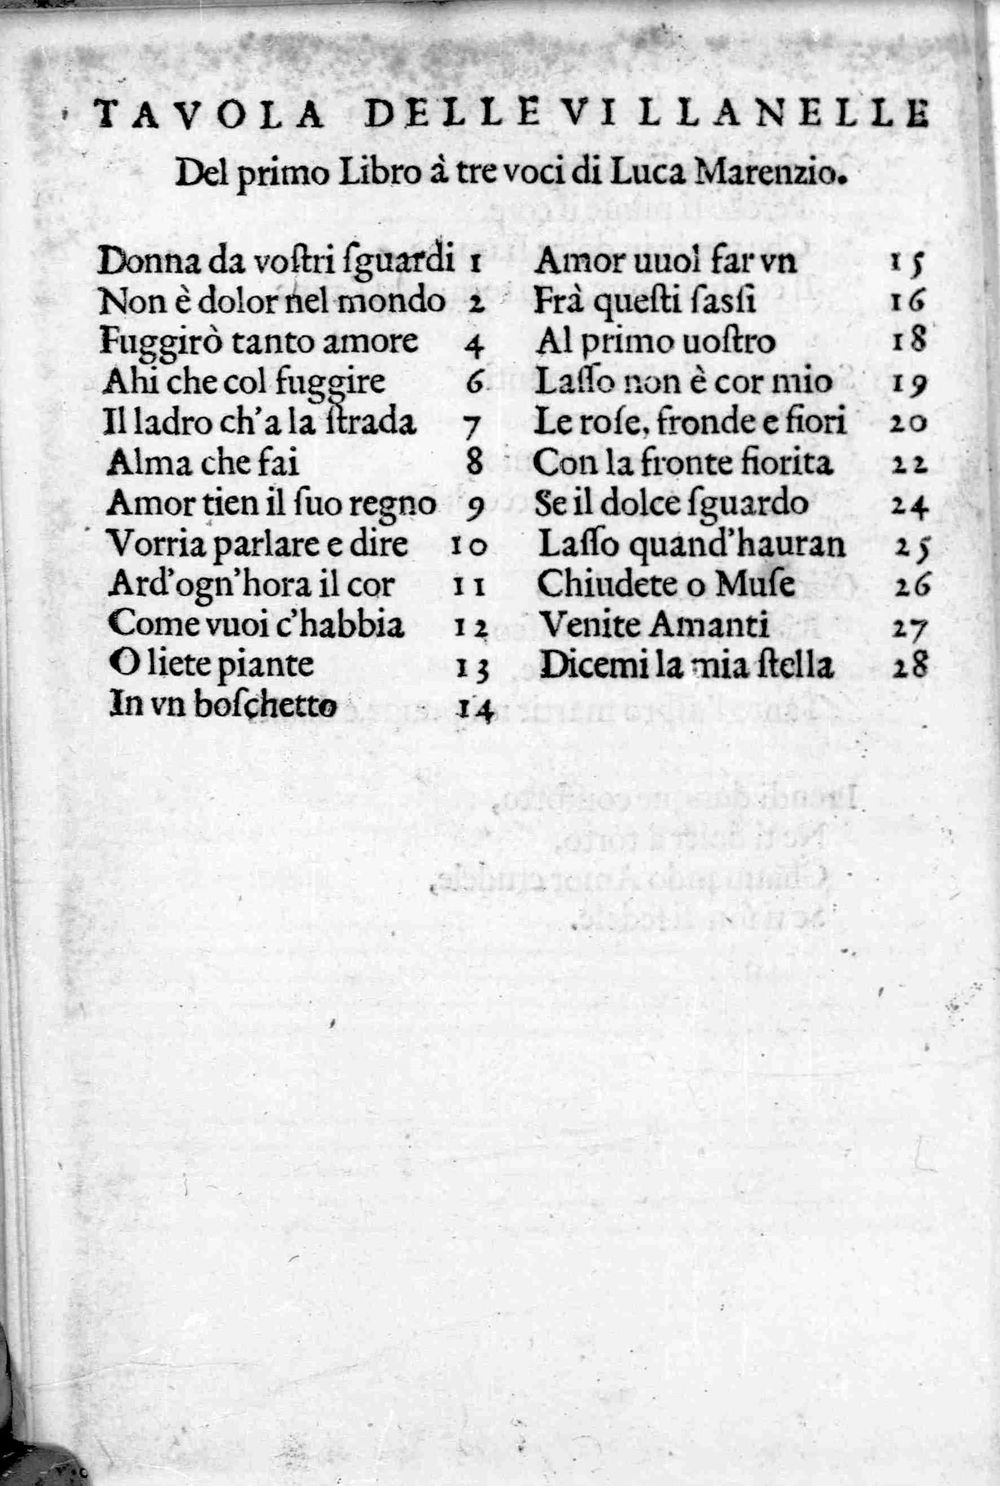 TAVOLA DELLE VILLANELLE
Del primo Libro à tre voci di Luca Marenzio.
Donna da voſtri ſguardi 1
Non è dolor nel mondo 2
Fuggirò tanto amore 4
Ahi che col fuggire 6
Il ladro ch'a la ſtrada 7
Alma che fai 8
Amor tien il ſuo regno 9
Vorria parlare e dire 10
Ard'ogn'hora il cor 11
Come vuoi c'habbia 12
O liete piante 13
In vn boſchetto 14
Amor uuol far vn 15
Frà queſti ſaſſi 16
Al primo uoſtro 18
Laſſo non è cor mio 19
Le roſe, fronde e fiori 20
Con la fronte fiorita 22
Se il dolce ſguardo 24
Laſſo quand'hauran 25
Chiudete o Muſe 26
Venite Amanti 27
Dicemi la mia ſtella 28